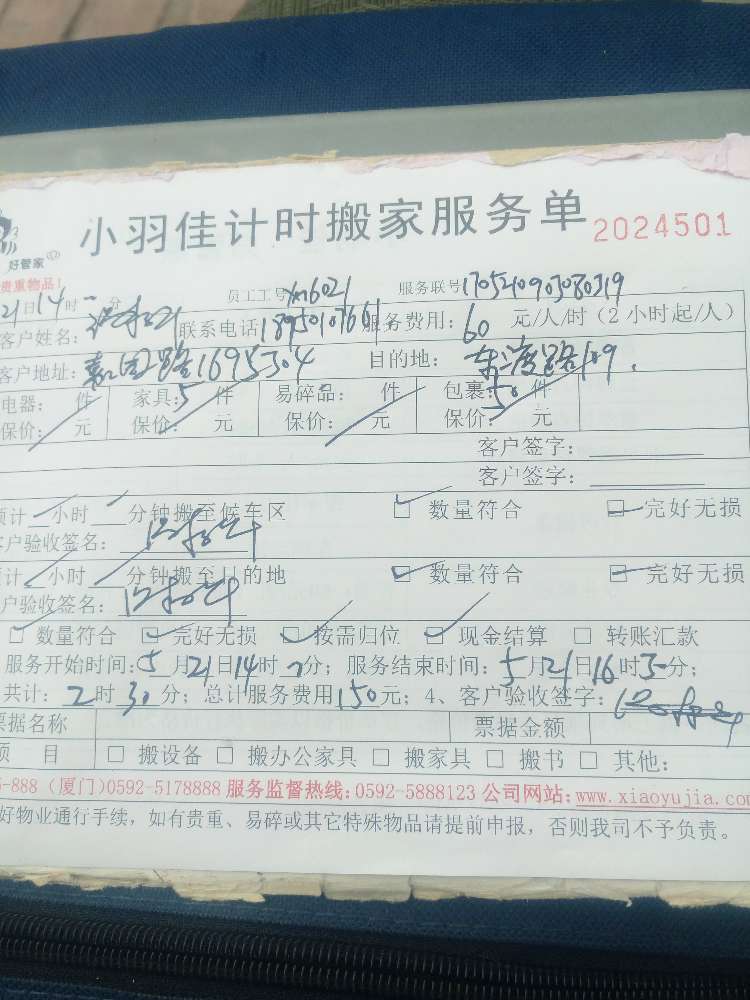 小羽佳计时搬家服务单 2024501
好管家
贵重物品!
21日14时 分 员工工号xm6021 服务联号1705210903080319
客户姓名: 联系电话 服务费用: 60 元/人/时（2小时起/人）
客户地址: 嘉园路1695304 目的地: 东渡路109.
电器: 件 家具: 5 件 易碎品: 件 包裹: 50 件
保价: 元 保价: 元 保价: 元 保价: 元
客户签字:
客户签字:
预计 小时 分钟搬至候车区 数量符合 完好无损
客户验收签名:
预计 小时 分钟搬至目的地 数量符合 完好无损
客户验收签名:
数量符合 完好无损 按需归位 现金结算 转账汇款
服务开始时间: 5月21日14时 分; 服务结束时间: 5月21日16时3 分;
共计: 2时30分; 总计服务费用150元; 4、客户验收签字:
票据名称 票据金额
项 目 搬设备 搬办公家具 搬家具 搬书 其他:
-888 (厦门)0592-5178888 服务监督热线: 0592-5888123 公司网站: www.xiaoyujia.com
好物业通行手续，如有贵重、易碎或其它特殊物品请提前申报，否则我司不予负责。